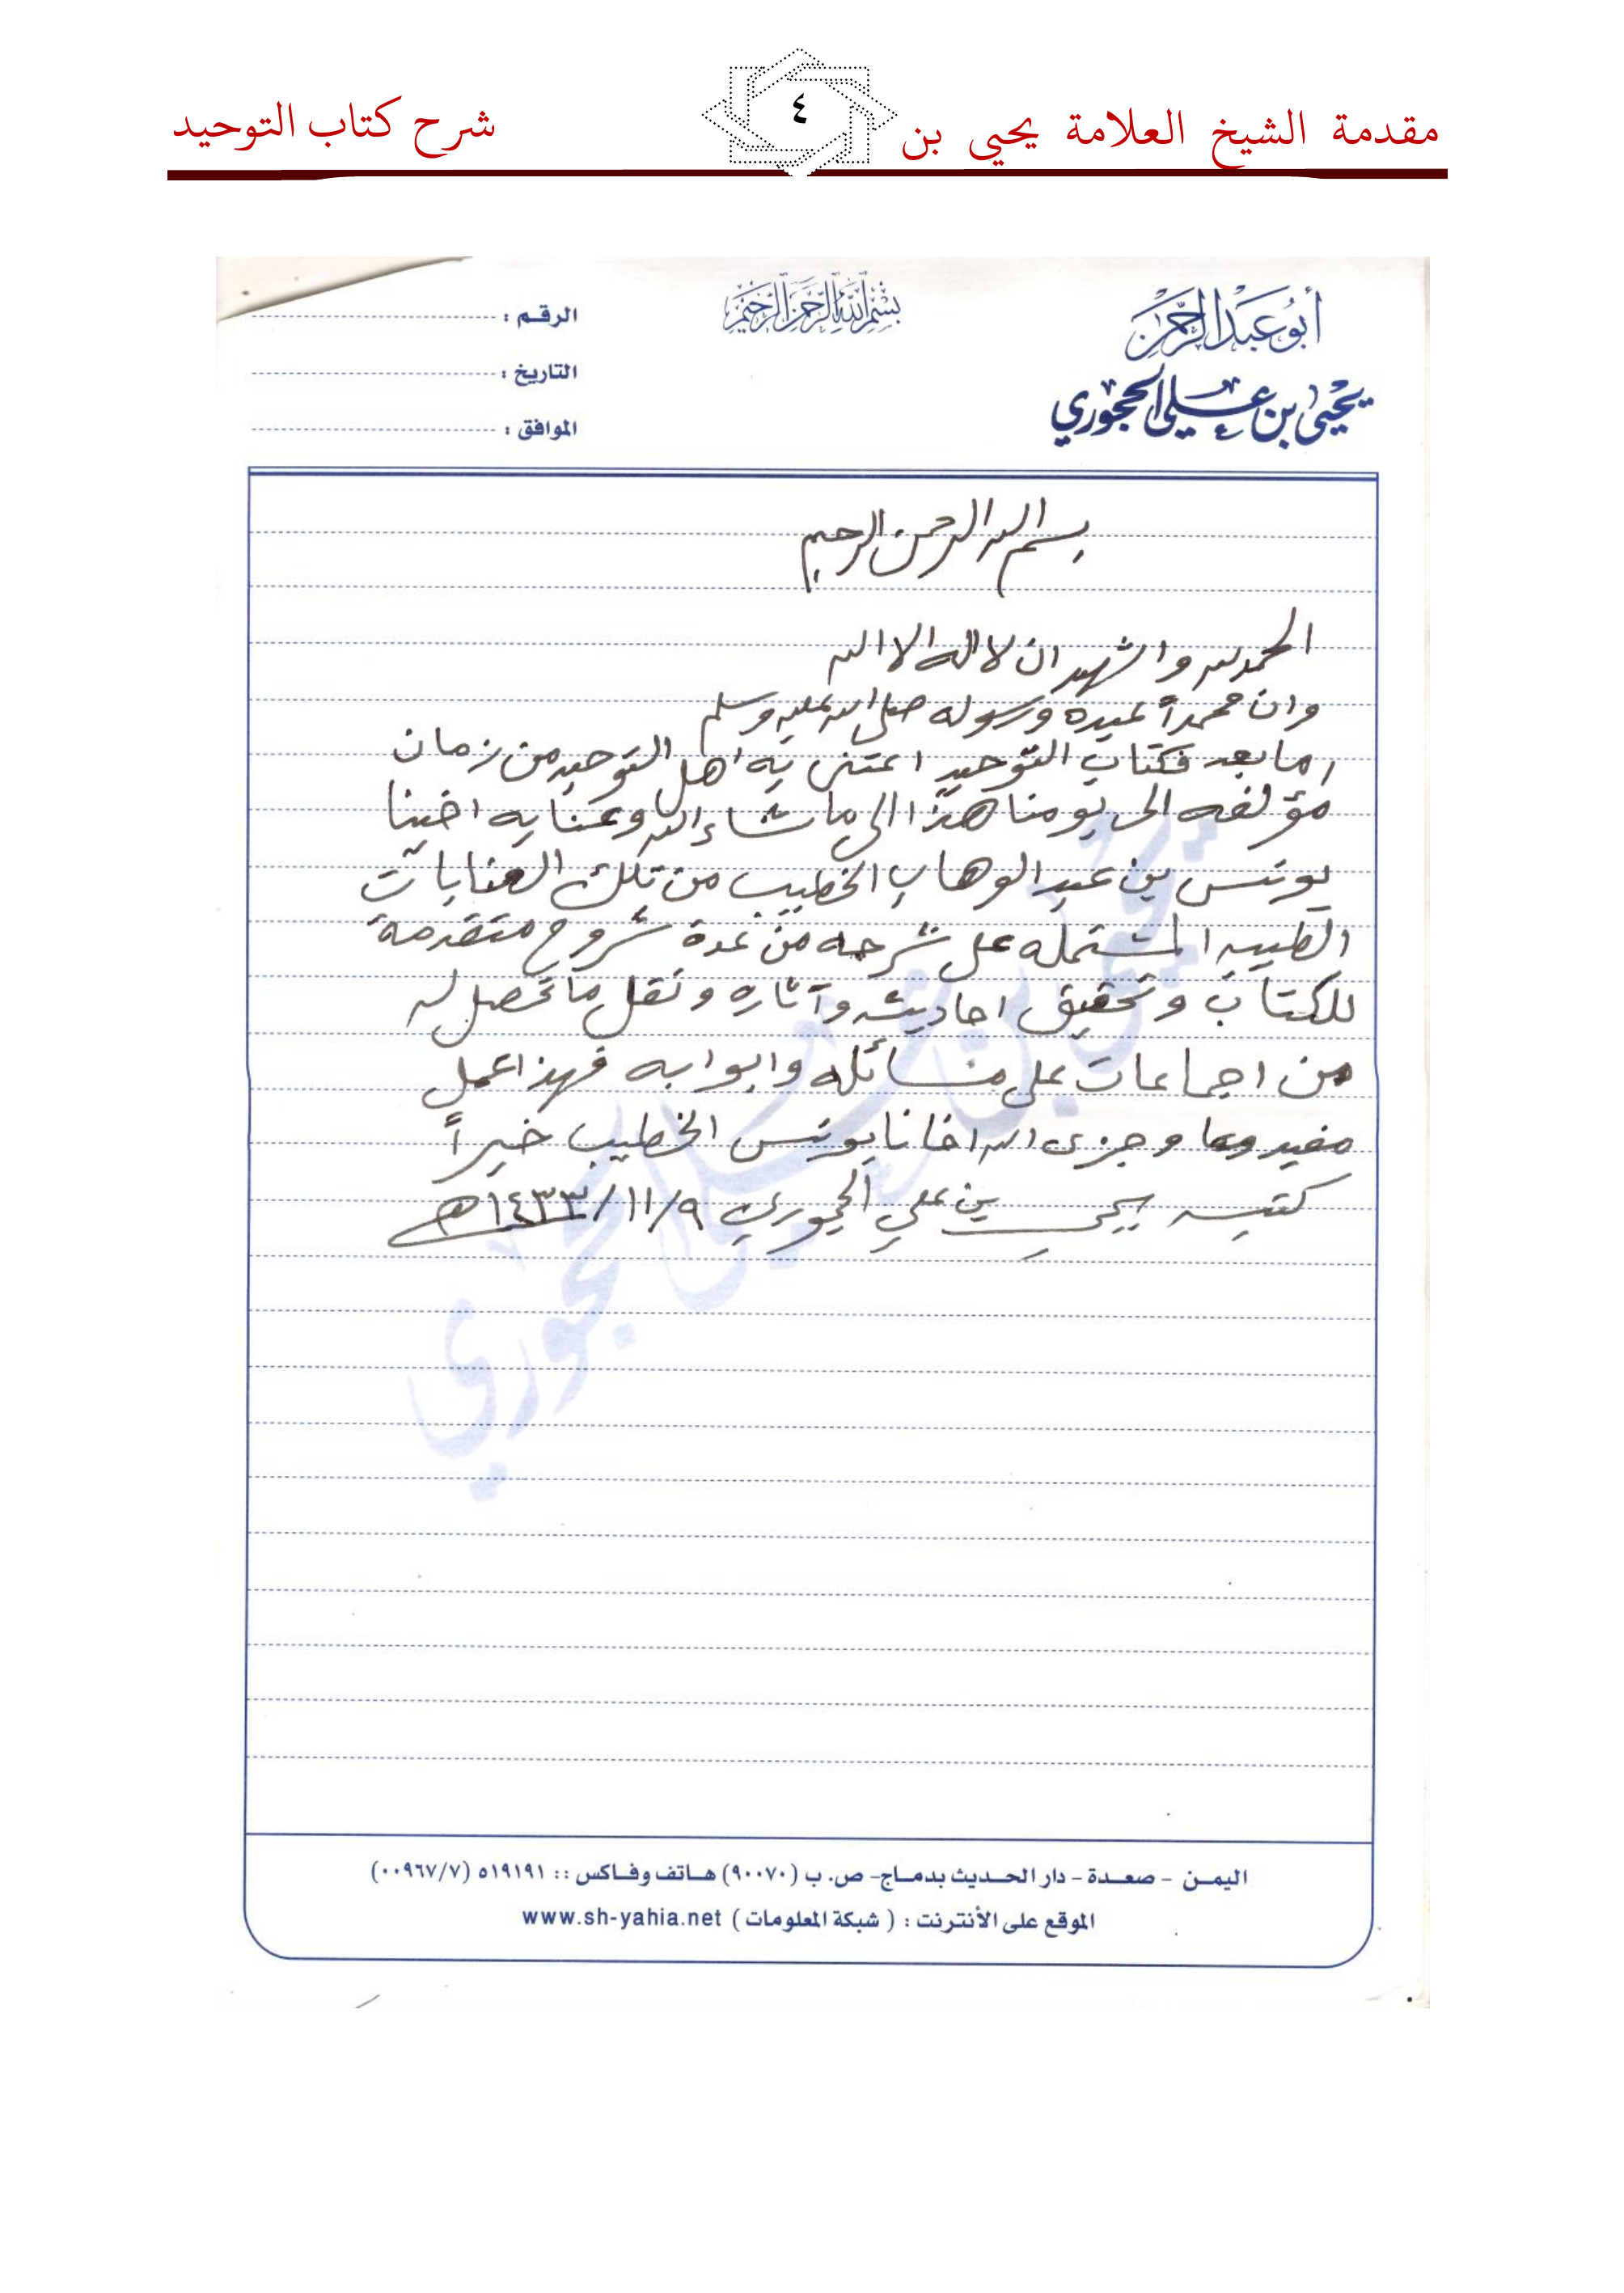 مقدمة الشيخ العلامة يحيى بن
٤
شرح كتاب التوحيد
أبو عبد الرحمن
يحيى بن علي الحجوري
بسم الله الرحمن الرحيم
الرقم :
التاريخ :
الموافق :
بسم الله الرحمن الرحيم
الحمد لله واشهد ان لا اله الا الله
وان محمداً عبده ورسوله صلى الله عليه وسلم
اما بعد فكتاب التوحيد اعتنى به اهل التوحيد من زمان
مؤلفه الى يومنا هذا الى ما شاء الله وعنايه اخينا
يونس بن عبد الوهاب الخطيب من تلك العنايات
الطيبه المشتمله على شرحه من عدة شروح متقدمة
للكتاب وتحقيق احاديثه وآثاره ونقل ما تحصل له
من اجماعات على مسائله وابوابه فهذا عمل
مفيد وجزى الله اخانا يونس الخطيب خيراً
كتبه يحيى بن علي الحجوري ٩/١١/١٤٣٣هـ
يحيى بن علي الحجوري
اليمن - صعدة - دار الحديث بدماج- ص. ب (٩٠٠٧٠) هاتف وفاكس :: ٥١٩١٩١ (٠٠٩٦٧/٧)
الموقع على الأنترنت : ( شبكة المعلومات ) www.sh-yahia.net